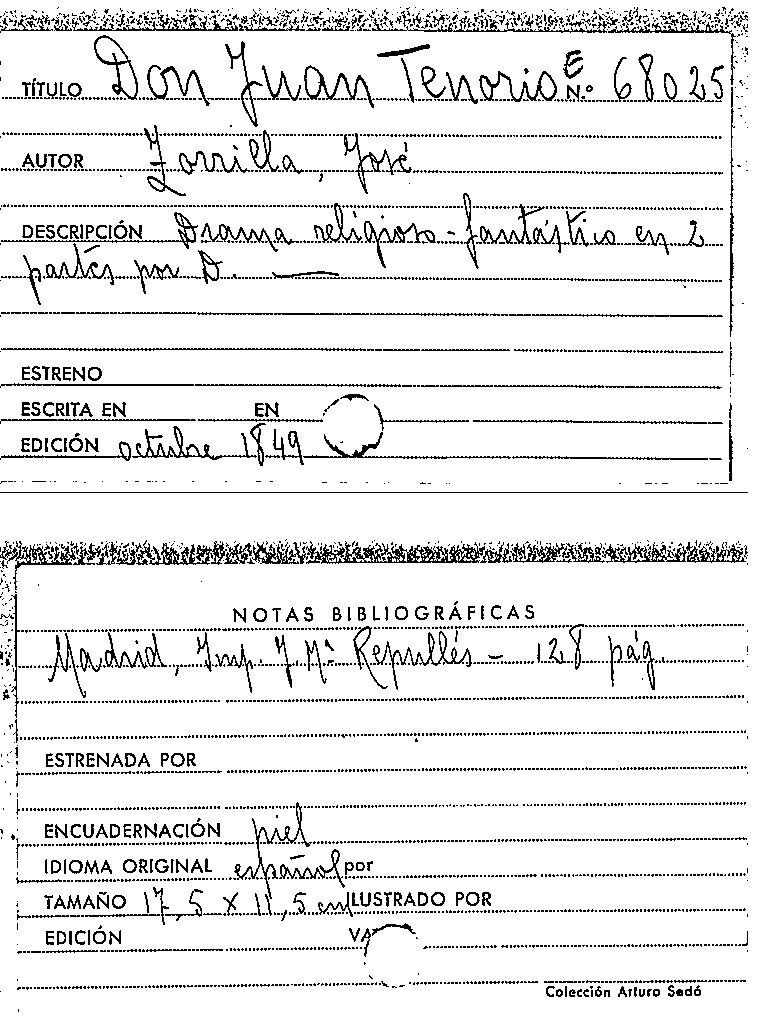 TÍTULO Don Juan Tenorio E N.º 68025
AUTOR Zorrilla, José
DESCRIPCIÓN Drama religioso-fantástico en 2
partes por D. —
ESTRENO
ESCRITA EN EN
EDICIÓN octubre 1849
NOTAS BIBLIOGRÁFICAS
Madrid, Imp. J. Mª Repullés - 128 pág.
ESTRENADA POR
ENCUADERNACIÓN piel
IDIOMA ORIGINAL español por
TAMAÑO 17,5 x 11,5 cm ILUSTRADO POR
EDICIÓN
Colección Arturo Sedó